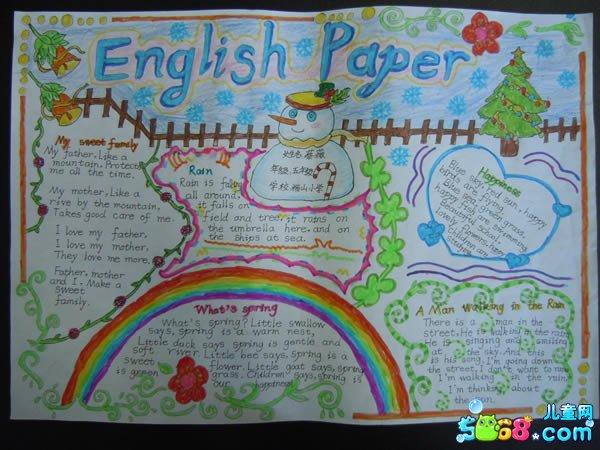 English Paper
My sweet family
My father, like a
mountain. Protects
me all the time.
My mother, Like a
rive by the mountain.
Takes good care of me.
I love my father.
I love my mother.
They love me more.
Father, mother
and I. Make a
sweet
family.
Rain
Rain is falling
all around.
it falls on
field and tree, it rains on
the umbrella here. and on
the ships at sea.
姓名:
年级:五年级
学校:福山小学
Happiness
Blue sky, happy
birds are flying
Blue sea, green grass,
happy fish are swimming
Beautiful school.
lovely flowers. happy
children are
A Man Walking in the Rain
There is a man in the
street. He is walking in the rain
He is singing and smiling
at the sky. And this
is his song. I'm going down
the street, I don't want to
I'm walking in the rain
I'm thinking about
the sun.
What's spring
What's spring? Little swallow
says, spring is a warm nest,
Little duck says spring is gentle and
soft river. Little bee says, spring is a
sweet flower. Little goat says, spring
is green grass. Children says, spring is
our happiness!
儿童网
5068.com